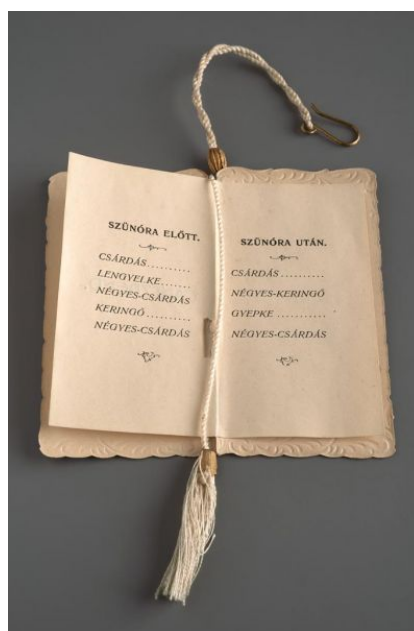 SZÜNÓRA ELŐTT.
CSÁRDÁS..........
LENGYELKE.......
NÉGYES-CSÁRDÁS
KERINGŐ..........
NÉGYES-CSÁRDÁS
SZÜNÓRA UTÁN.
CSÁRDÁS..........
NÉGYES-KERINGŐ
GYEPKE............
NÉGYES-CSÁRDÁS